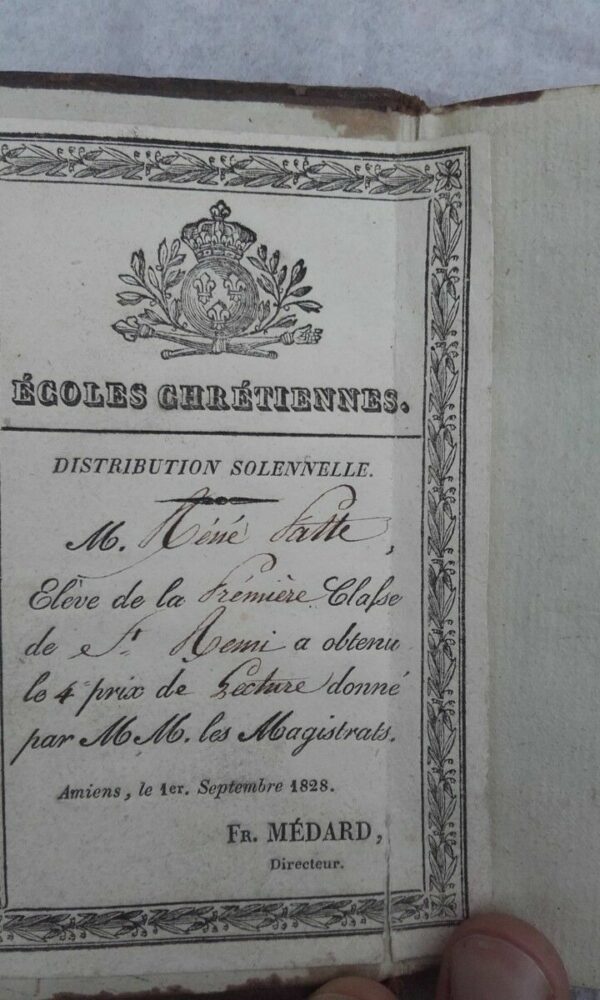 ÉCOLES CHRÉTIENNES.
DISTRIBUTION SOLENNELLE.
M. Réné Patte,
Elève de la Prémière Claſse
de St Remi a obtenu
le 4e prix de Lecture donné
par M M. les Magistrats.
Amiens, le 1er. Septembre 1828.
FR. MÉDARD,
Directeur.